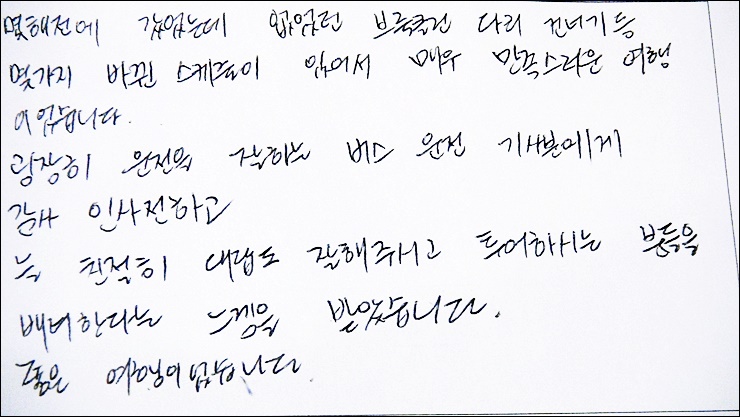 몇해전에 갔었는데 없었던 브룩클린 다리 건너기등
몇가지 바뀐 스케쥴이 있어서 매우 만족스러운 여행
이었습니다.
굉장히 운전을 잘하는 버스 운전 기사분에게
감사 인사전하고
늘 친절히 대답도 잘해주시고 투어하시는 분들을
배려한다는 느낌을 받았습니다.
좋은 여행이었습니다